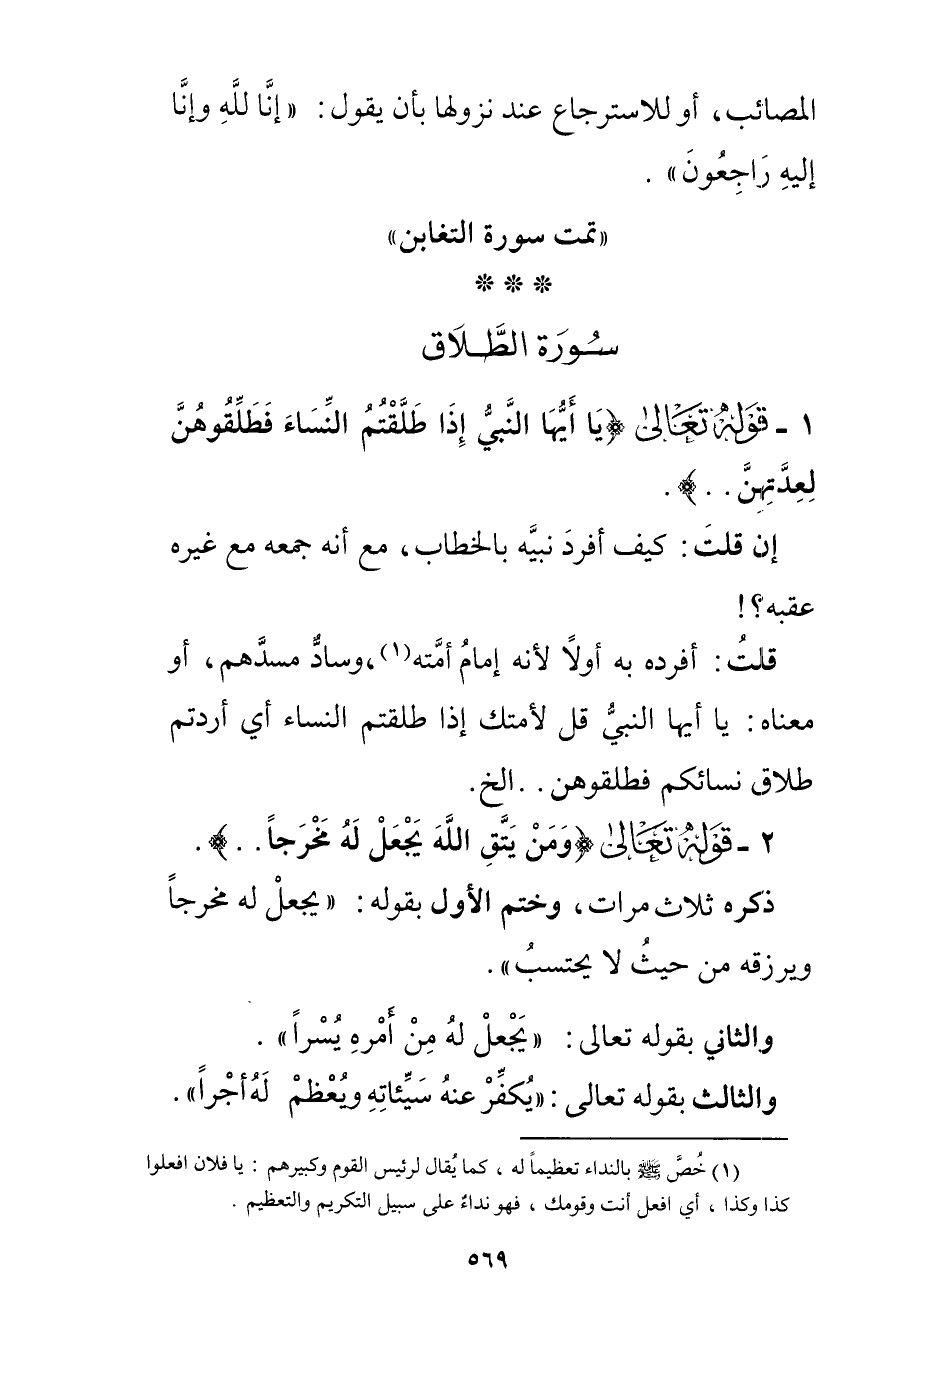 المصائب، أو للاسترجاع عند نزولها بأن يقول: «إنَّا للَّهِ وإنَّا
إليهِ رَاجِعُونَ» .
«تمت سورة التغابن»
* * *
سُورَة الطَّلَاق
١ - قَوْلُهُ تَعَالَىٰ ﴿يَا أَيُّهَا النَّبيُّ إِذَا طَلَّقْتُمُ النِّسَاءَ فَطَلِّقُوهُنَّ
لِعِدَّتِهِنَّ . . ﴾ .
إن قلتَ: كيف أفردَ نبيَّه بالخطاب، مع أنه جمعه مع غيره
عقبه؟!
قلتُ: أفرده به أولًا لأنه إمامُ أمَّته(١)،وسادٌّ مسدَّهم، أو
معناه: يا أيها النبيُّ قل لأمتك إذا طلقتم النساء أي أردتم
طلاق نسائكم فطلقوهن . . .الخ.
٢ - قَوْلُهُ تَعَالَىٰ ﴿وَمَنْ يَتَّقِ اللَّهَ يَجْعَلْ لَهُ مَخْرَجاً. . .﴾ .
ذكره ثلاث مرات، وختم الأول بقوله: «يجعلْ له مخرجاً
ويرزقه من حيثُ لا يحتسبُ» .
والثاني بقوله تعالى: «يَجْعلْ لهُ مِنْ أَمْرهِ يُسْراً» .
والثالث بقوله تعالى :«يُكفِّرْ عنهُ سَيِّئاتِهِ ويُعْظمْ لَهُ أجْراً» .
(١) خُصَّ ﷺ بالنداء تعظيماً له ، كما يُقال لرئيس القوم وكبيرهم : يا فلان افعلوا
كذا وكذا ، أي افعل أنت وقومك ، فهو نداءٌ على سبيل التكريم والتعظيم .
٥٦٩